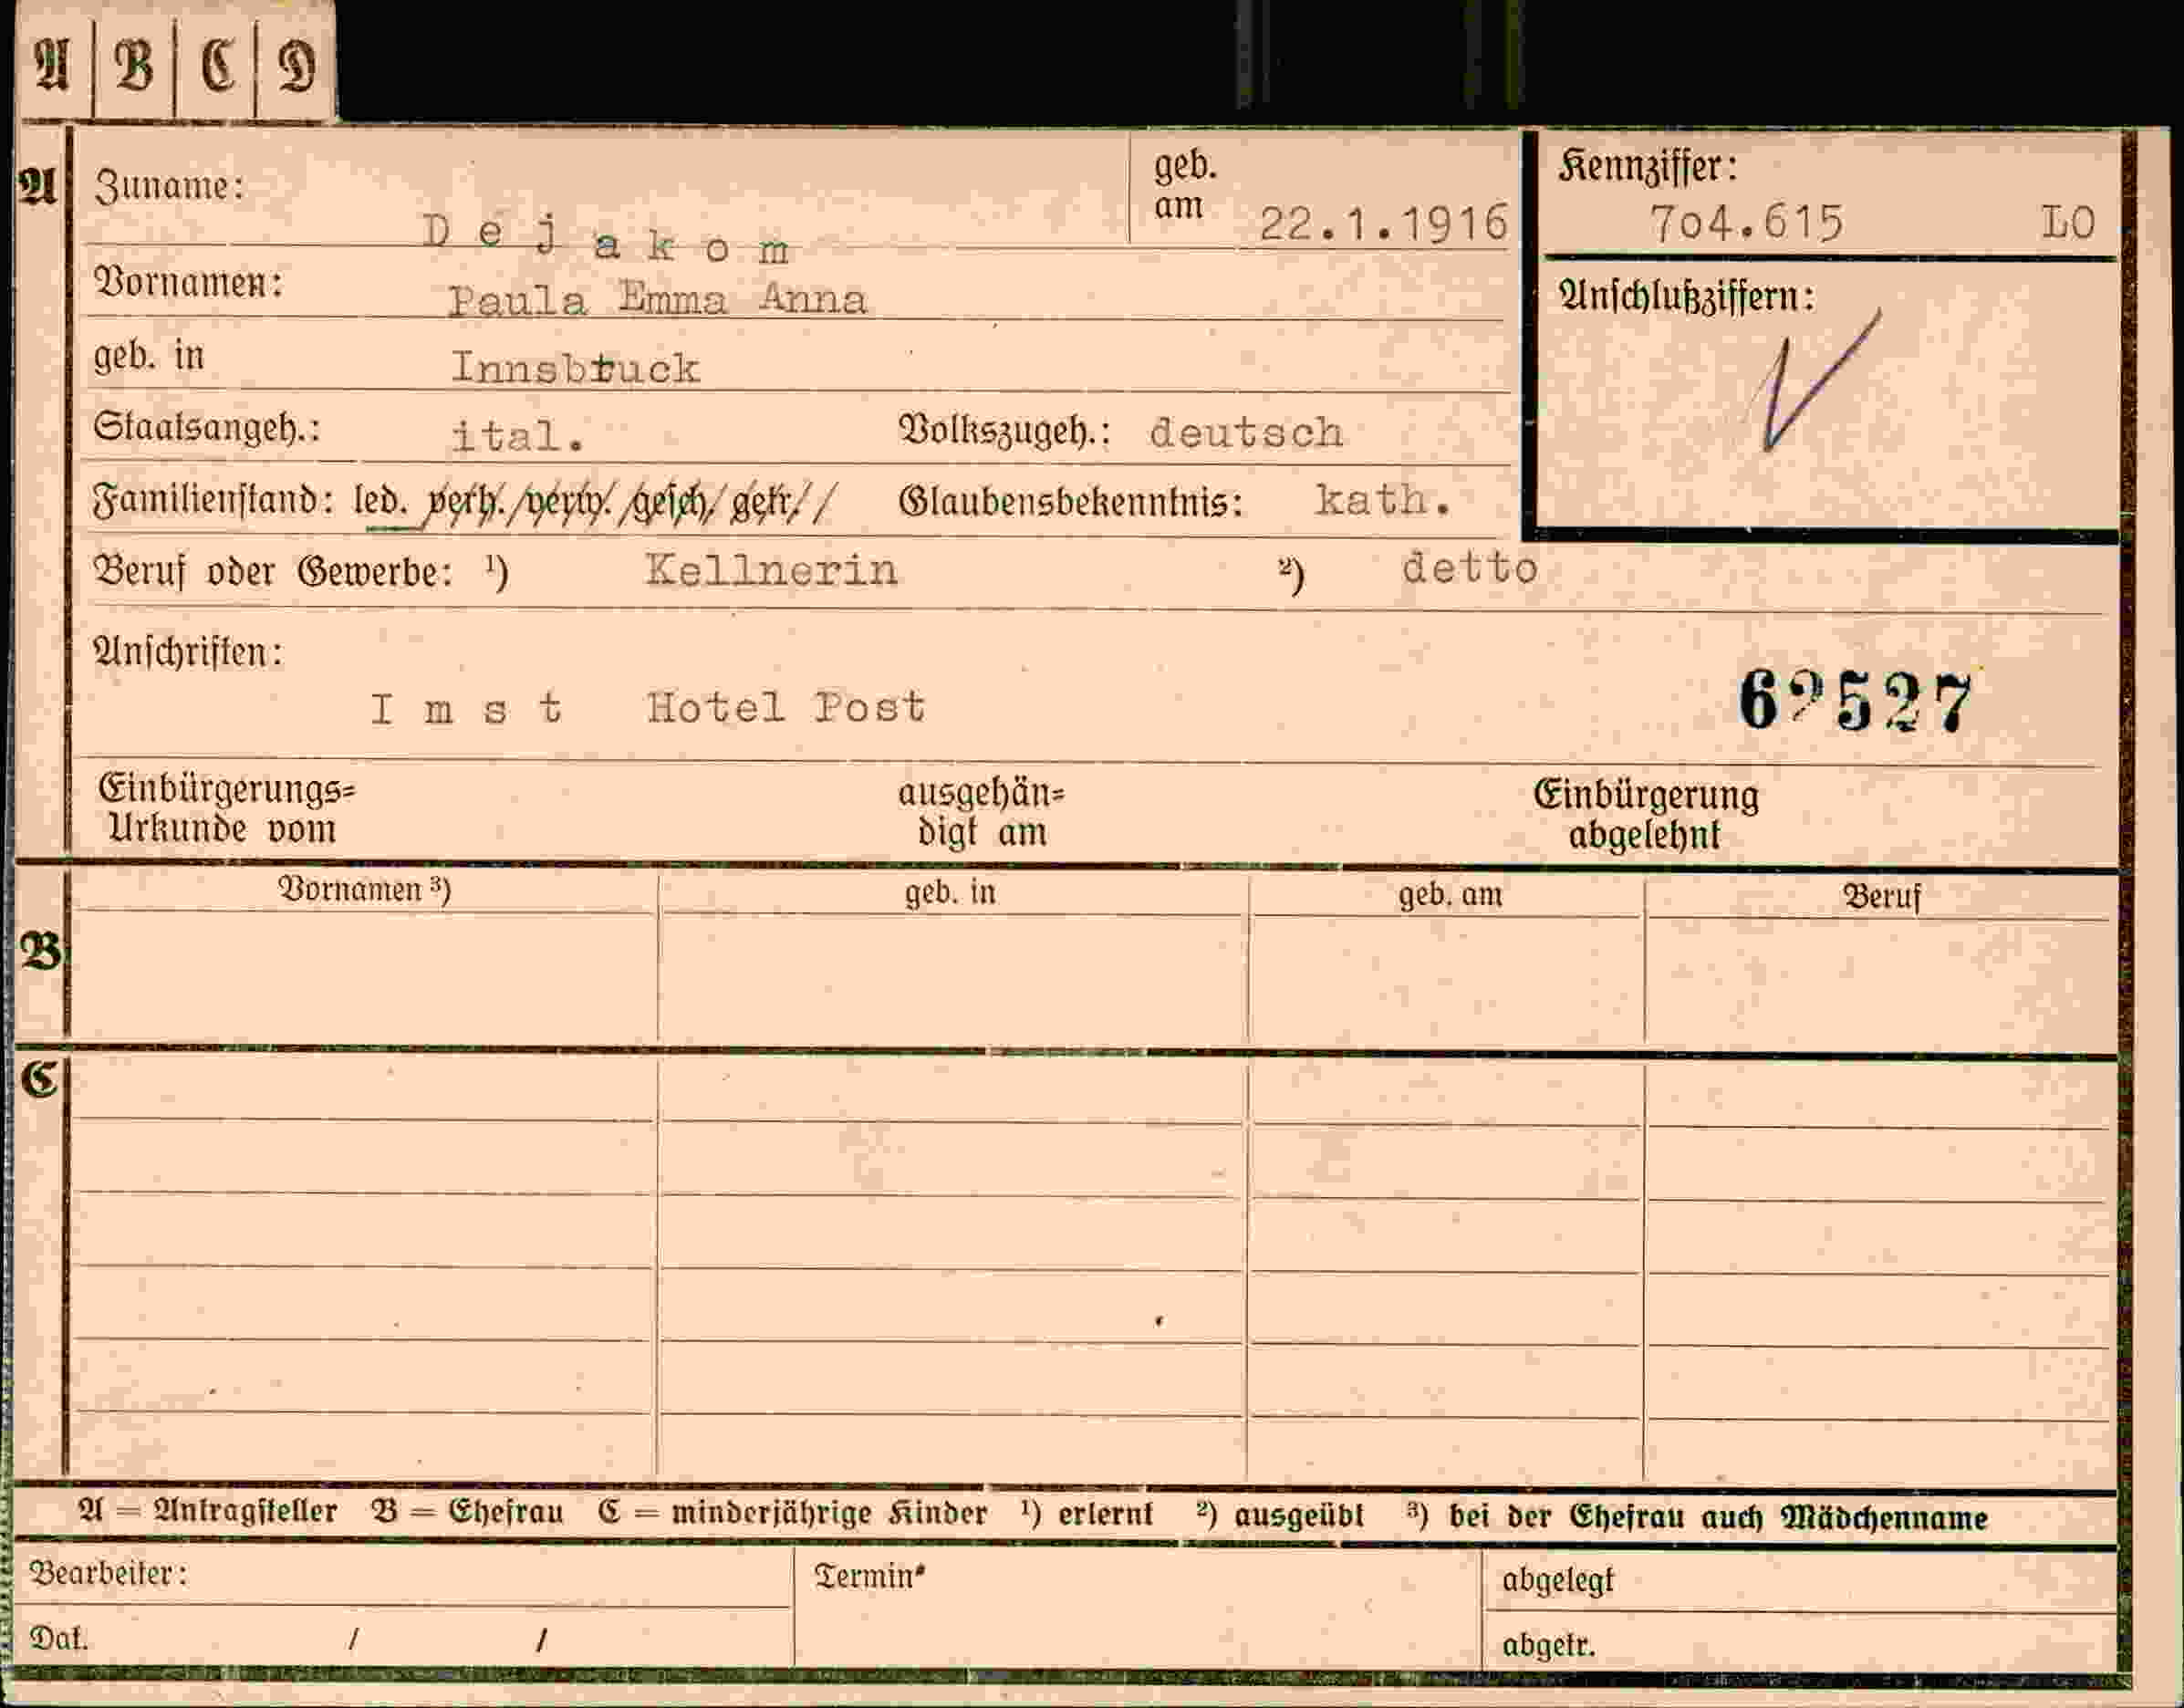 A B C D
A Zuname: Dejakom geb. am 22.1.1916
Kennziffer: 7o4.615 LO
Vornamen: Paula Emma Anna
Anschlußziffern:
geb. in Innsbruck
Staatsangeh.: ital. Volkszugeh.: deutsch
Familienstand: led. verh./verw./gesch/getr// Glaubensbekenntnis: kath.
Beruf oder Gewerbe: ¹) Kellnerin ²) detto
Anschriften:
Imst Hotel Post 62527
Einbürgerungs= ausgehän= Einbürgerung
Urkunde vom digt am abgelehnt
Vornamen ³) geb. in geb. am Beruf
B
C
A = Antragsteller B = Ehefrau C = minderjährige Kinder ¹) erlernt ²) ausgeübt ³) bei der Ehefrau auch Mädchenname
Bearbeiter: Termin* abgelegt
Dat. / / abgetr.